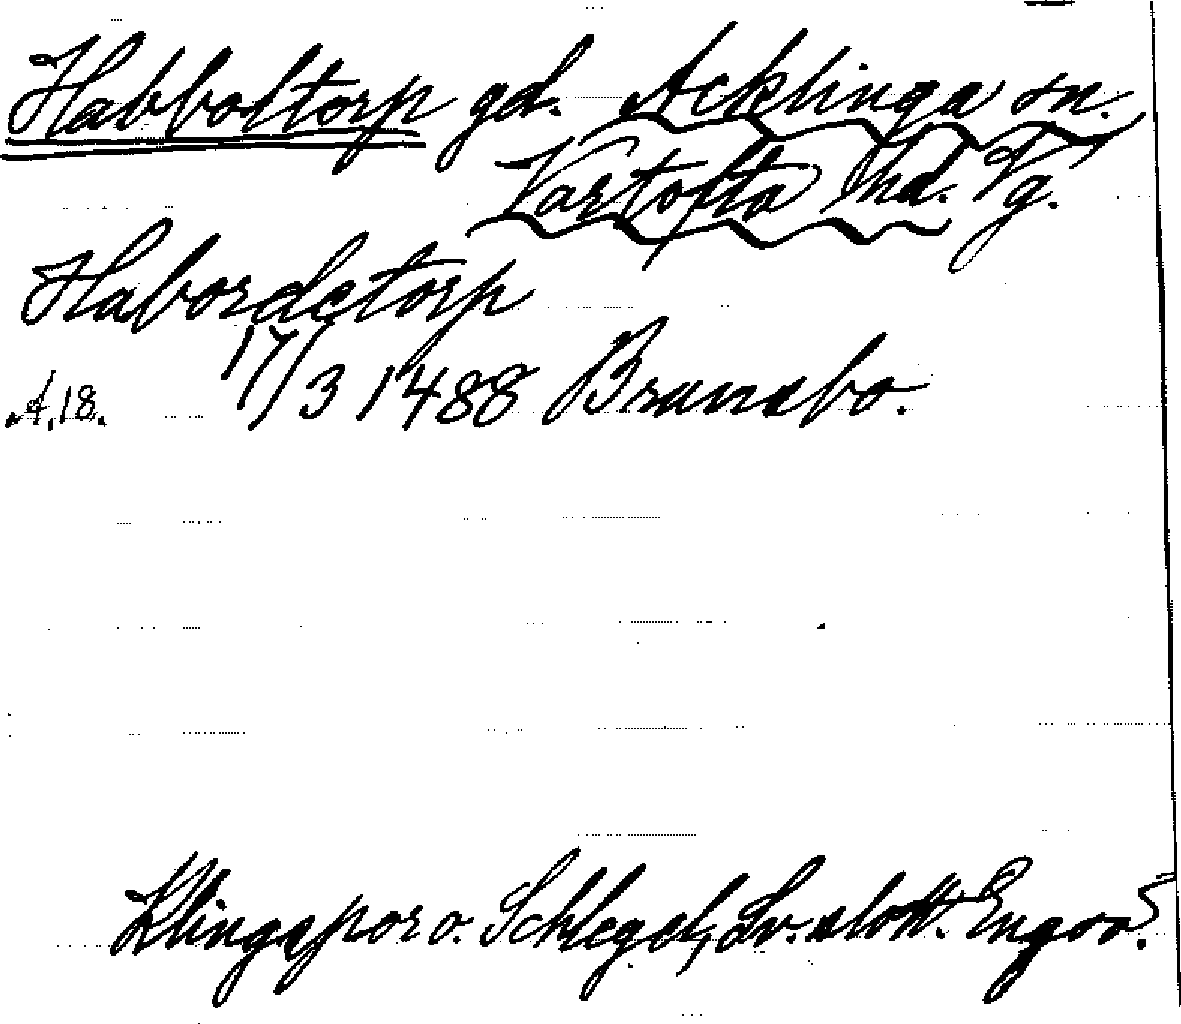 Habboltorp gd. Acklinga sn.
Vartofta hd. Vg.
Habordetorp
A. 18. 17/3 1488 Brunsbo.
Klingspor o. Schlegel, Sv. slott. Engsö.